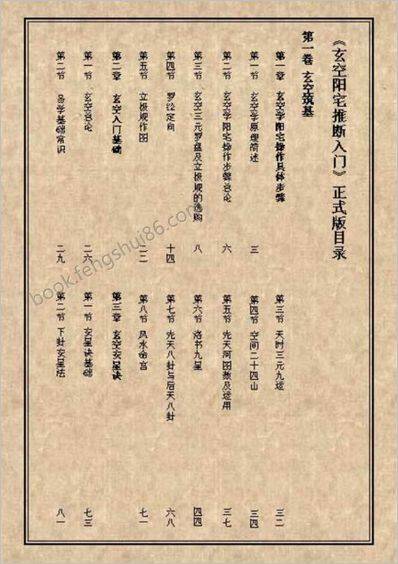 《玄空阳宅推断入门》正式版目录
第一卷 玄空筑基
第一章 玄空学阳宅操作具体步骤
第一节 玄空学原理简述 三
第二节 玄空学阳宅操作步骤总论 六
第三节 玄空三元罗盘及立极规的选购 八
第四节 罗经定向 十四
第五节 立极规作图 二二
第二章 玄空入门基础
第一节 玄空总论 二六
第二节 易学基础常识 二九
第三节 天时三元九运 三二
第四节 空间二十四山 三四
第五节 先天河图数及运用 三七
第六节 洛书九星 四四
第七节 先天八卦与后天八卦 六八
第八节 风水命宫 七一
第三章 玄空安星诀
第一节 安星诀基础 七三
第二节 下卦安星法 八一
book.fengshui86.com